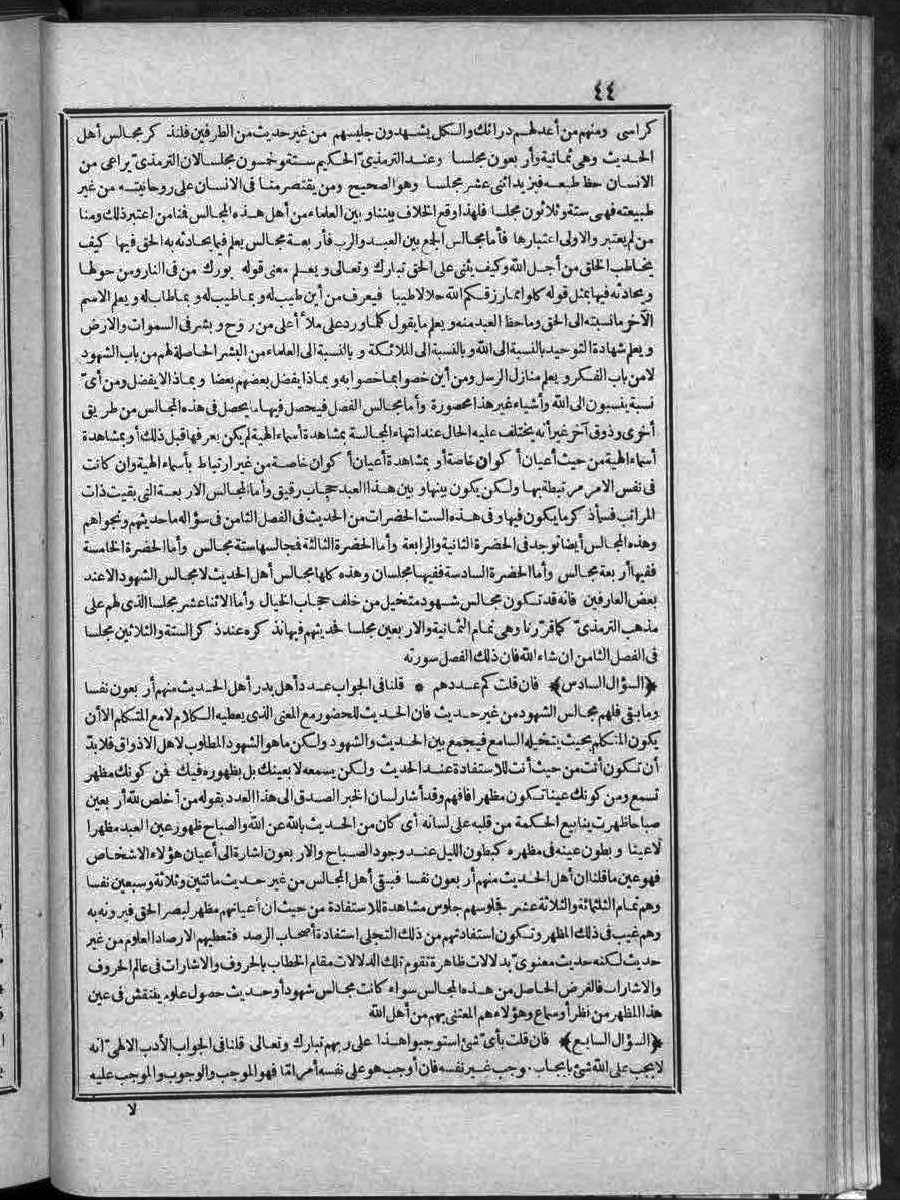 ٤٤
كراسى ومنهم من أعد لهم درائك والكل يشهدون جليسهم من غير حديث من الطرفين فلنذكر مجالس أهل
الحديث وهى ثمانية وأربعون مجلسا وعند الترمذىّ الحكيم ستة وخمسون مجلسا لان الترمذىّ يراعى من
الانسان حظ طبعه فيزيد اثنى عشر مجلسا وهو الصحيح ومن يقتصر منا فى الانسان على روحانيته من غير
طبيعته فهى ستة وثلاثون مجلسا فلهذا وقع الخلاف بيننا وبين العلماء من أهل هذه المجالس فمنا من اعتبر ذلك ومنا
من لم يعتبر والاولى اعتبارها فأما مجالس الجمع بين العبد والرب فأربعة مجالس يعلم فيما يحادثه به الحق فيها كيف
يخاطب الخلق من أجل الله وكيف يثنى على الحق تبارك وتعالى ويعلم معنى قوله بورك من فى النار ومن حولها
ويحادثه فيها بمثل قوله كلوا مما رزقكم الله حلالا طيبا فيعرف من أين طيب له وبما طيب له وبما طاب له ويعلم الاسم
الآخر ما نسبته الى الحق وما حظ العبد منه ويعلم ما يقول كلما ورد على ملأ أعلى من روح وبشر فى السموات والارض
ويعلم شهادة التوحيد بالنسبة الى الله وبالنسبة الى الملائكة وبالنسبة الى العلماء من البشر الحاصلة لهم من باب الشهود
لا من باب الفكر ويعلم منازل الرسل ومن أين خصوا بما خصوا به وبماذا يفضل بعضهم بعضا وبماذا لا يفضل ومن أىّ
نسبة ينسبون الى الله وأشياء غير هذا محصورة وأما مجالس الفصل فيحصل فيها ما يحصل فى هذه المجالس من طريقى
أخرى وذوق آخر غير أنه يختلف عليه الحال عند انتهاء المجالسة بمشاهدة أسماء الهية لم يكن يعرفها قبل ذلك أو بمشاهدة
أسماء الهية من حيث أعيان أكوان خاصة أو بمشاهدة أعيان أكوان خاصة من غير ارتباط بأسماء الهية وان كانت
فى نفس الامر مرتبطة بها ولكن يكون بينها وبين هذا العبد حجاب رقيق وأما المجالس الاربعة التى بقيت ذات
المراتب فسأذكر ما يكون فيها وفى هذه الست الحضرات من الحديث فى الفصل الثامن فى سؤاله ما حديثهم ونجواهم
وهذه المجالس أيضا توجد فى الحضرة الثانية والرابعة وأما الحضرة الثالثة فمجالسها ستة مجالس وأما الحضرة الخامسة
ففيها أربعة مجالس وأما الحضرة السادسة ففيها مجلسان وهذه كلها مجالس أهل الحديث لا مجالس الشهود الا عند
بعض العارفين فانه قد تكون مجالس شهود متخيل من خلف حجاب الخيال وأما الاثنا عشر مجلسا الذى لهم على
مذهب الترمذىّ كما قرّرنا وهى تمام الثمانية والاربعين مجلسا فحديثهم فيها نذكره عند ذكر الستة والثلاثين مجلسا
فى الفصل الثامن ان شاء الله فان ذلك الفصل سورته
﴿السؤال السادس﴾ فان قلت كم عددهم * قلنا فى الجواب عدد أهل بدر أهل الحديث منهم أربعون نفسا
وما بقى فلهم مجالس الشهود من غير حديث فان الحديث للمحضور مع المعنى الذى يعطيه الكلام لا مع المتكلم الا أن
يكون المتكلم بحيث يتخيله السامع فيجمع بين الحديث والشهود ولكن ما هو الشهود المطلوب لاهل الاذواق فلابدّ
أن تكون أنت من حيث أنت للاستفادة عند الحديث ولكن يسمعه لا بعينك بل بظهوره فيك فمن كونك مظهر
تسمع ومن كونك عينا تكون مظهرا فافهم وقد أشار لسان الخبر الصدق الى هذا العدد بقوله من أخلص لله أربعين
صباحا ظهرت ينابيع الحكمة من قلبه على لسانه أى كان من الحديث بالله عن الله والصباح ظهور عين العبد مظهرا
لا عينا وبطون عينه فى مظهره كبطون الليل عند وجود الصباح والاربعون اشارة الى أعيان هؤلاء الاشخاص
فهو عين ما قلنا ان أهل الحديث منهم أربعون نفسا فيبقى أهل المجالس من غير حديث مائتين وثلاثة وسبعين نفسا
وهم تمام الثلثمائة والثلاثة عشر فجلوسهم جلوس مشاهدة للاستفادة من حيث ان أعيانهم مظهر لبصر الحق فيرونه به
وهم غيب فى ذلك المظهر وتكون استفادتهم من ذلك التجلى استفادة أصحاب الرصد فتعطيهم الارصاد العلوم من غير
حديث لكنه حديث معنوىّ بدلالات ظاهرة تقوم تلك الدلالات مقام الخطاب بالحروف والاشارات فى عالم الحروف
والاشارات فالغرض الحاصل من هذه المجالس سواء كانت مجالس شهود أو حديث حصول علوم ينتقش فى عين
هذا المظهر من نظر أو سماع وهؤلاء هم المعتنى بهم من أهل الله
﴿السؤال السابع﴾ فان قلت بأىّ شئ استوجبوا هذا على ربهم تبارك وتعالى قلنا فى الجواب الأدب الالهىّ انه
لا يجب على الله شئ بايجاب موجب غير نفسه فان أوجب هو على نفسه أمرا مّا فهو الموجب والوجوب والموجب عليه
لا